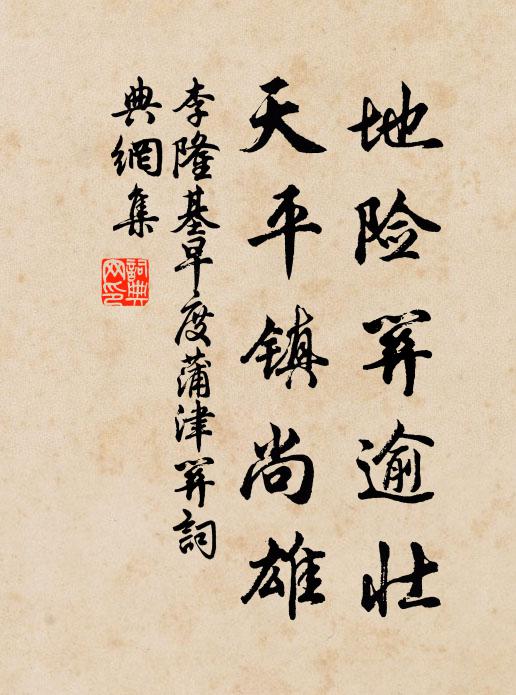 地险関逾壮
天平镇尚雄
李隆基早度蒲津関詞
典網集
詞典
网印